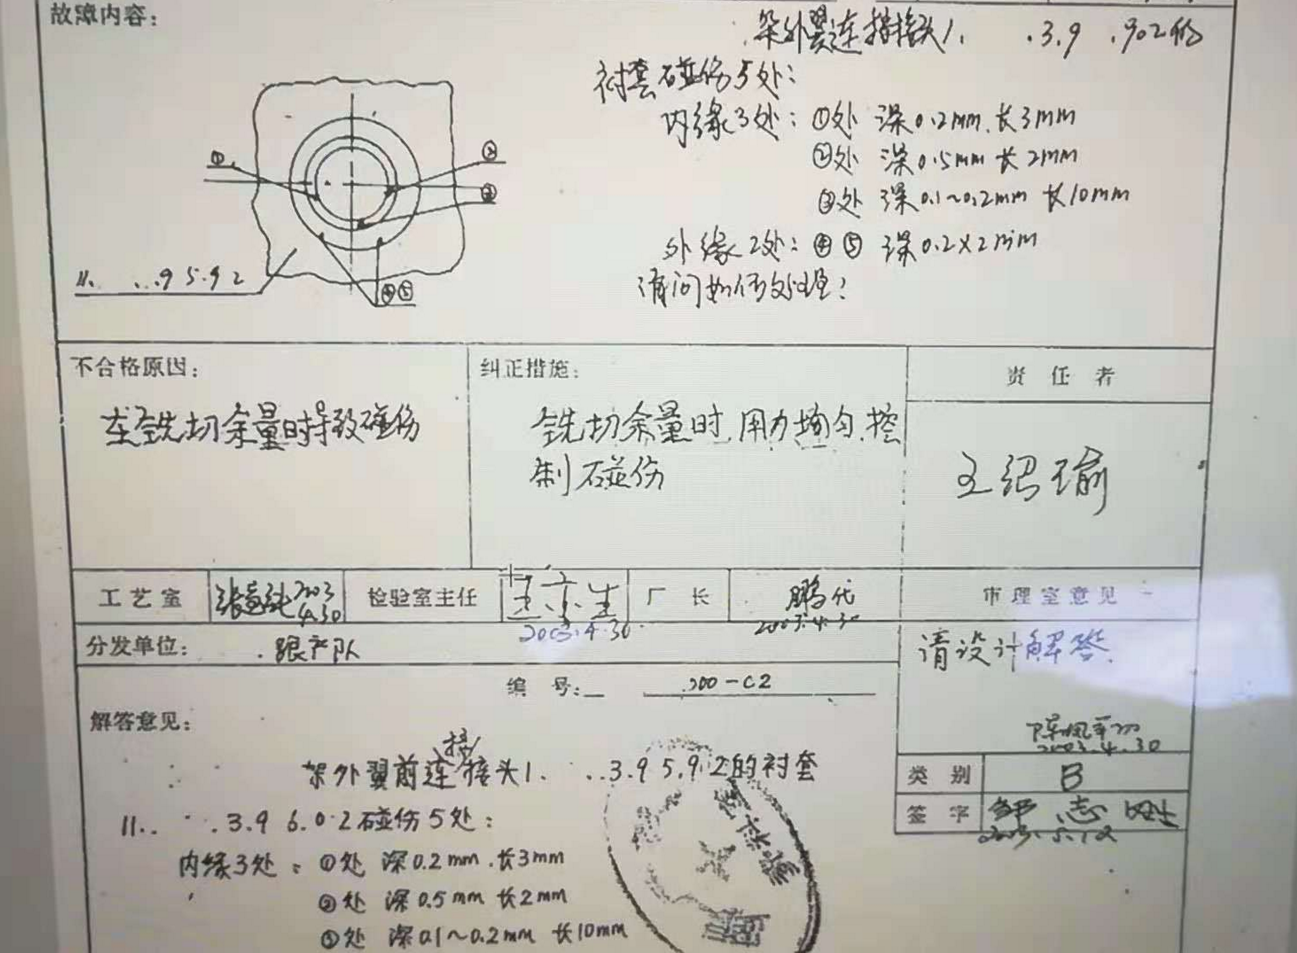 故障内容:
架外翼连接接头1. .3.9 .902的
衬套碰伤5处:
内缘3处: ①处 深0.2mm.长3mm
②处 深0.5mm 长2mm
③处 深0.1~0.2mm 长10mm
外缘2处: ④⑤ 深0.2×2mm
请问如何处理?
①
②
③
④⑤
11. ...95.92
不合格原因:
在铣切余量时导致碰伤
纠正措施:
铣切余量时,用力均匀,控
制碰伤
责任者
王绍瑜
工艺室
2003
4.30
检验室主任
2003.4.30
厂长
2003.4.30
审理室意见
请设计解答
2003.4.30
分发单位: 跟产队
编号: 200-C2
类别 B
签字
2003.5.12
解答意见:
架外翼前连接头1. ..3.95.92的衬套
接
11.. .3.96.02碰伤5处:
内缘3处: ①处 深0.2mm.长3mm
②处 深0.5mm 长2mm
③处 深0.1~0.2mm 长10mm